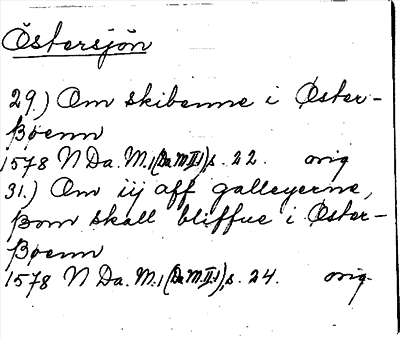 Östersjön
29.) Om skibenne i Øster-
ßøenn
1578 N Da. M.1(Da M II1), s. 22. orig
31.) Om iij aff galleyerne,
ßom skall bliffue i Øster-
ßøenn
1578 N Da. M.1(Da M.II.1), s. 24. orig.